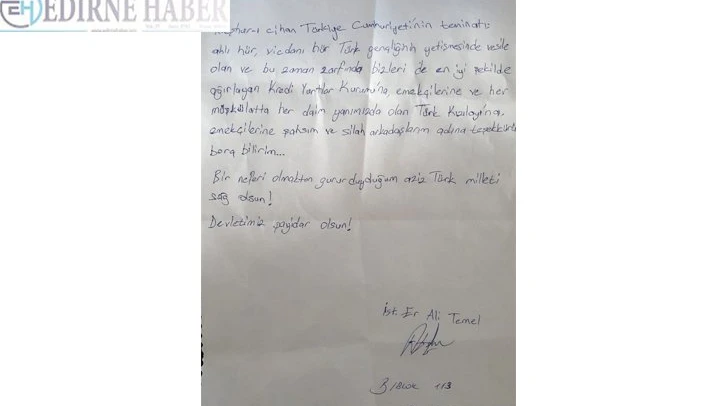 EDİRNE HABER
cihan Türkiye Cumhuriyeti'nin teminatı
aklı hür, vicdanı hür Türk gençliğinin yetişmesinde vesile
olan ve bu zaman zarfında bizleri de en iyi şekilde
ağırlayan Kredi Yurtlar Kurumu'na, emekçilerine ve her
müşkülatta her daim yanımızda olan Türk Kızılayı'na,
emekçilerine şahsım ve silah arkadaşlarım adına teşekkürü
borç bilirim...
Bir neferi olmaktan gurur duyduğum aziz Türk milleti
sağ olsun!
Devletimiz payidar olsun!
İst. Er Ali Temel
Blok 113